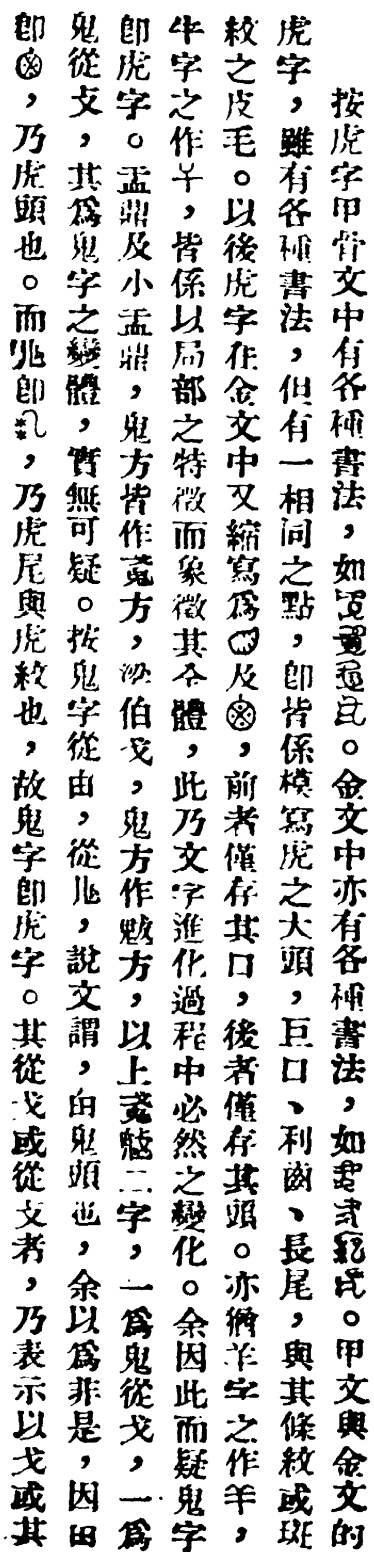 按虎字甲骨文中有各種書法，如。金文中亦有各種書法，如。甲文與金文的
虎字，雖有各種書法，但有一相同之點，卽皆係模寫虎之大頭，巨口、利齒、長尾，與其條紋或斑
紋之皮毛。以後虎字在金文中又縮寫爲及，前者僅存其口，後者僅存其頭。亦猶羊字之作羊，
牛字之作，皆係以局部之特徵而象徵其全體，此乃文字進化過程中必然之變化。余因此而疑鬼字
卽虎字。盂鼎及小盂鼎，鬼方皆作方，伯戈，鬼方作方，以上二字，一爲鬼從戈，一爲
鬼從攴，其爲鬼字之變體，實無可疑。按鬼字從由，從，說文謂，由鬼頭也，余以爲非是，因田
卽，乃虎頭也。而卽，乃虎尾與虎紋也，故鬼字卽虎字。其從戈或從攴者，乃表示以戈或其